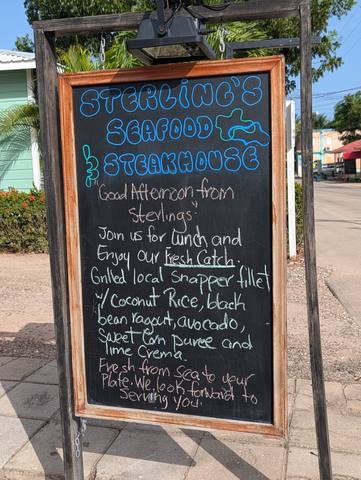 STERLING'S
SEAFOOD
& STEAKHOUSE
"Good Afternoon from
Sterlings"
Join us for lunch and
Enjoy Our Fresh Catch.
Grilled local snapper fillet
w/ coconut Rice, black
bean ragout, avocado,
Sweet Corn puree and
lime Crema.
Fresh from Sea to your
Plate. We look forward to
Serving you.